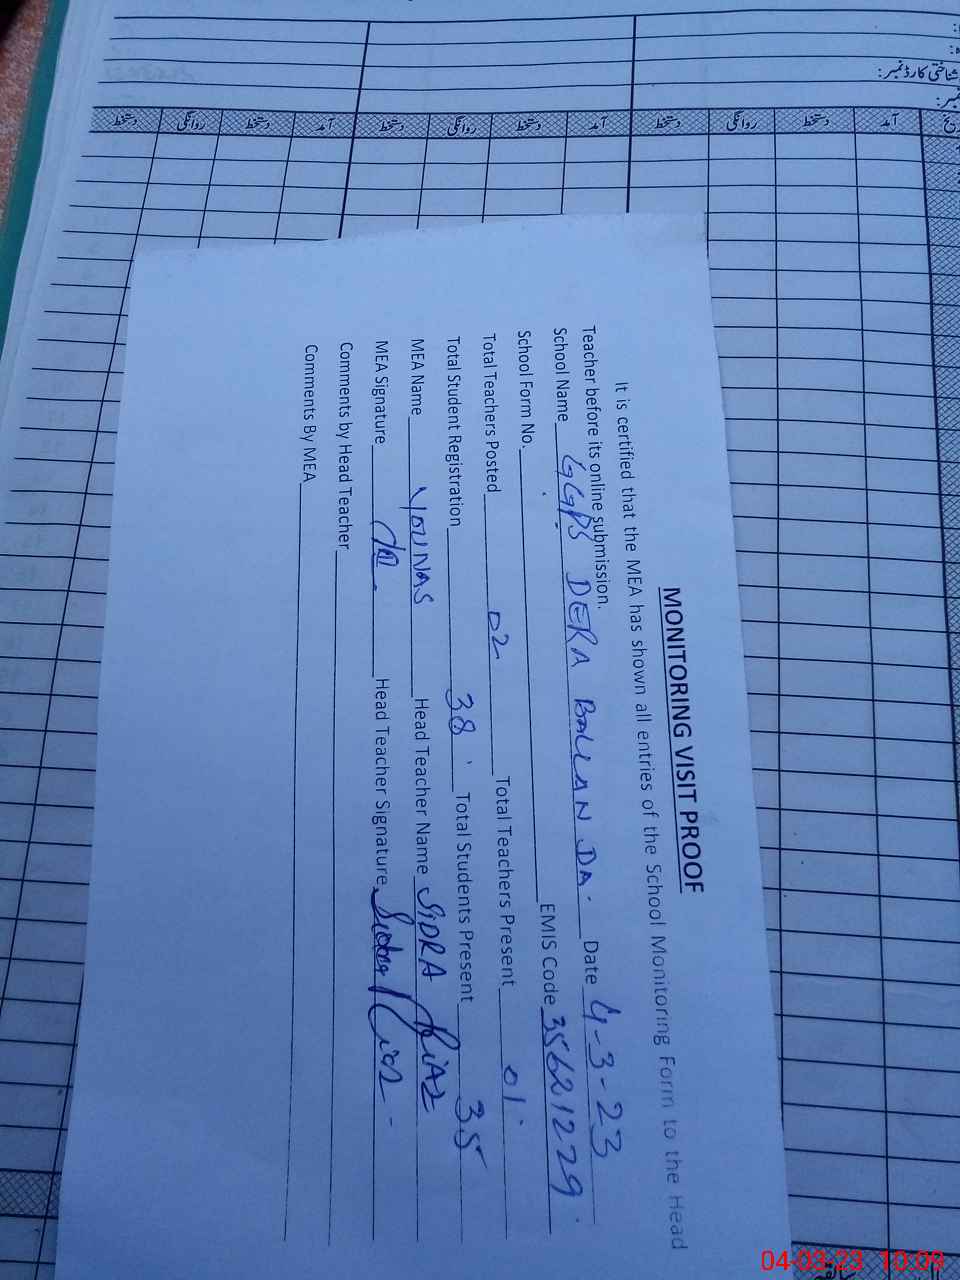 شناختی کارڈ نمبر:
آمد دستخط روانگی دستخط آمد دستخط روانگی دستخط آمد دستخط روانگی دستخط
MONITORING VISIT PROOF
It is certified that the MEA has shown all entries of the School Monitoring Form to the Head
Teacher before its online submission.
School Name GGPS DERA BALLAN DA. Date 4-3-23
School Form No. EMIS Code 35621229
Total Teachers Posted 02 Total Teachers Present 01
Total Student Registration 38 Total Students Present 35
MEA Name YOUNAS Head Teacher Name SIDRA RIAZ
MEA Signature Head Teacher Signature Sidra Riaz
Comments by Head Teacher
Comments By MEA
04-03-23 10:09